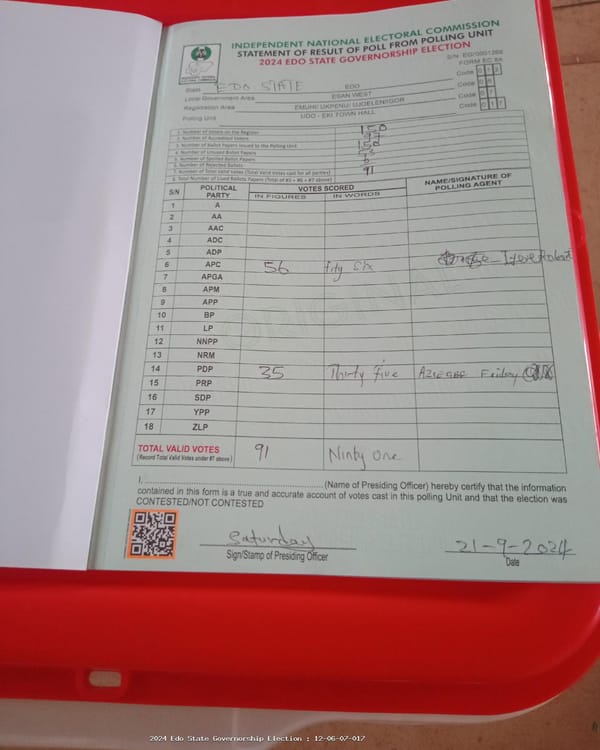 INDEPENDENT NATIONAL ELECTORAL COMMISSION
STATEMENT OF RESULT OF POLL FROM POLLING UNIT
2024 EDO STATE GOVERNORSHIP ELECTION
FORM EC 8A
State EDO STATE EDO Code 1 2
Local Government Area ESAN WEST Code 0 6
Registration Area EMUHI/ UKPENU/ UJOELEN/IGOR Code 0 7
Polling Unit UDO - EKI TOWN HALL Code 0 1 7
1. Number of Voters on the Register
2. Number of Accredited Voters
3. Number of Ballot Papers Issued to the Polling Unit
4. Number of Unused Ballot Papers
5. Number of Spoiled Ballot Papers
6. Number of Rejected Ballots
7. Number of Total Valid Votes (Total Valid Votes cast for all parties) 91
8. Total Number of Used Ballots Papers (Total of #5 + #6 + #7 above)
S/N POLITICAL PARTY VOTES SCORED NAME/SIGNATURE OF POLLING AGENT
IN FIGURES IN WORDS
1 A
2 AA
3 AAC
4 ADC
5 ADP
6 APC 56 fifty Six
7 APGA
8 APM
9 APP
10 BP
11 LP
12 NNPP
13 NRM
14 PDP 35 Thirty five Friday
15 PRP
16 SDP
17 YPP
18 ZLP
TOTAL VALID VOTES 91 Ninty One
(Record Total Valid Votes under #7 above)
I, (Name of Presiding Officer) hereby certify that the information
contained in this form is a true and accurate account of votes cast in this polling Unit and that the election was
CONTESTED/NOT CONTESTED
Saturday 21-9-2024
Sign/Stamp of Presiding Officer Date
2024 Edo State Governorship Election : 12-06-07-017